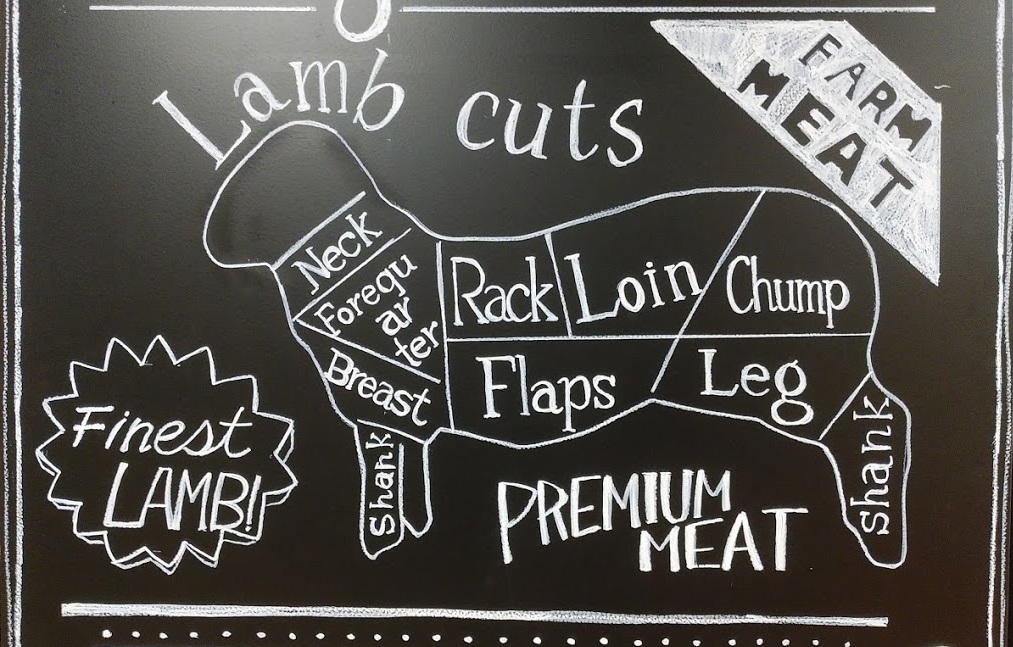 Lamb cuts
FARM
MEAT
Neck
Forequ
ar
ter
Rack
Loin
Chump
Breast
Flaps
Leg
Shank
Shank
Finest
LAMB!
PREMIUM
MEAT